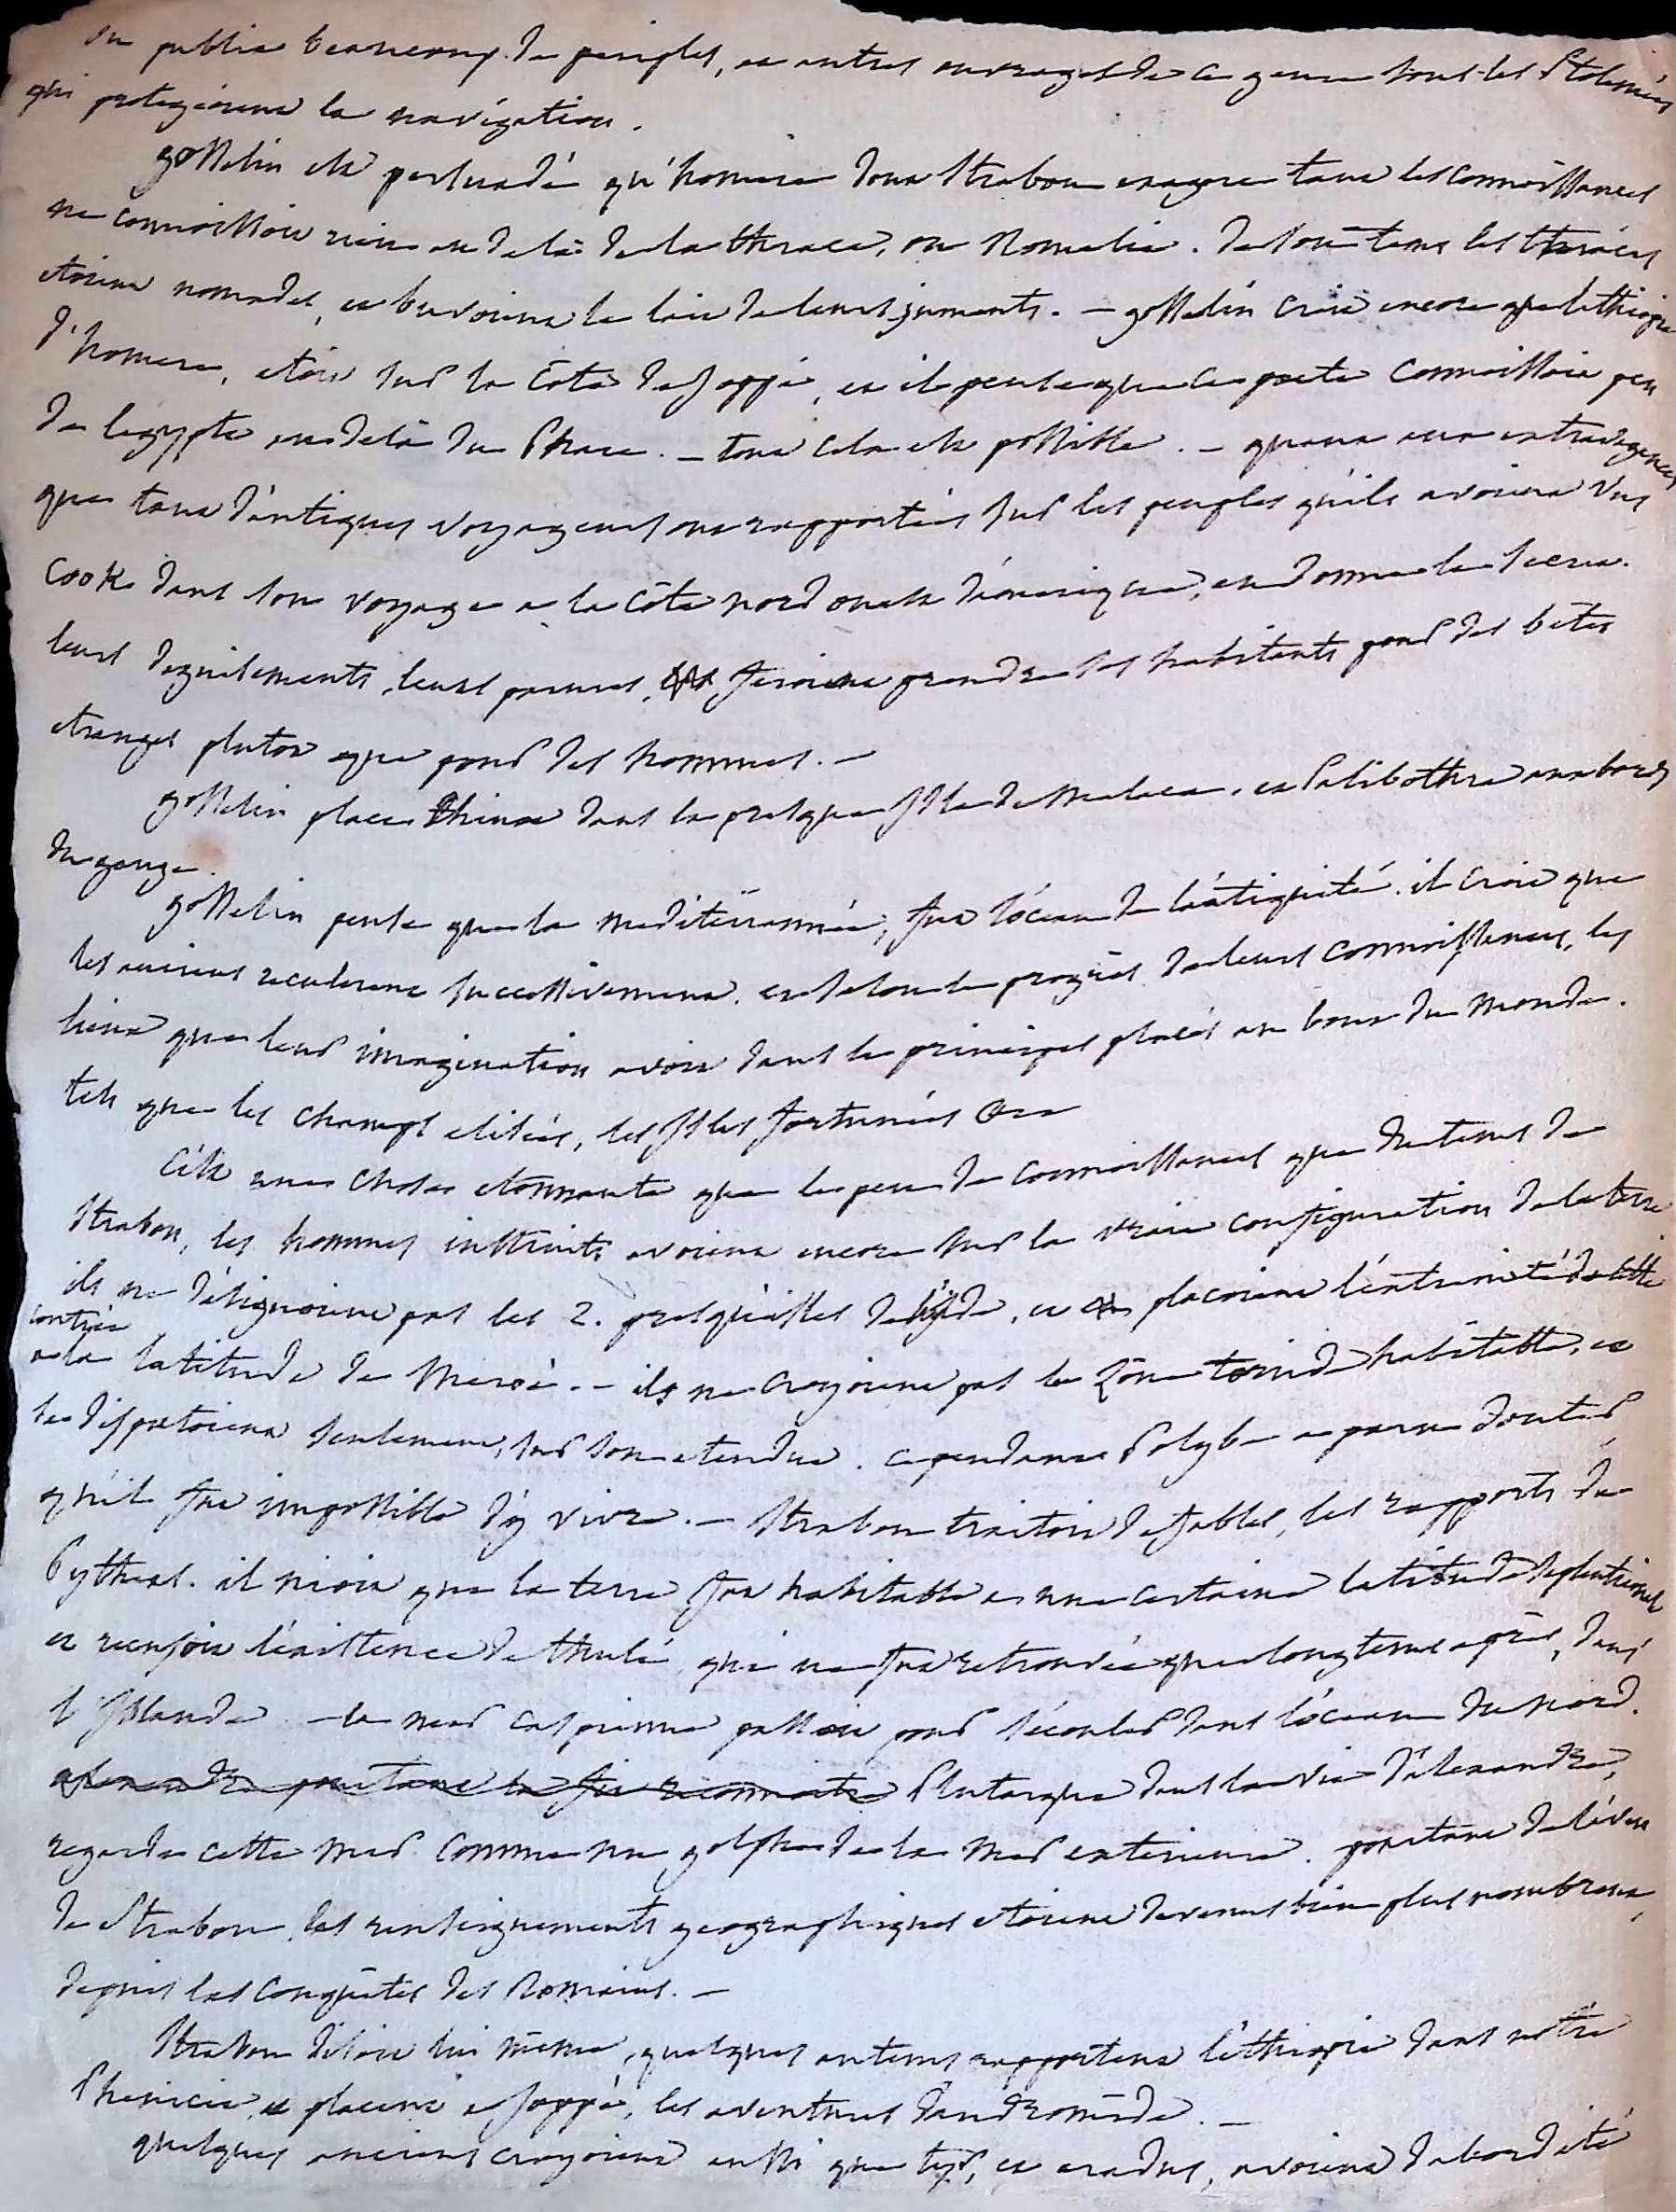 on publia beaucoup de periples, et autres ouvrages de ce genre sous les Ptolemées
qui protegèrent la navigation.
gosselin est persuadé qu'homere dont Strabon exagere tant les connoissances
ne connoissoit rien au delà de la thrace, ou Romelie. de son tems les thraces
etoient nomades, et buvoient le lait de leurs juments. - gosselin croit encore que lethiopie
d'homere, etoit sur la côte de Joppé, et il pense que ce poete connoissoit peu
de legypte au delà du Phare. - tout cela est possible. - quant aux extravagances
que tant d'antiques voyageurs ont rapportées sur les peuples qu'ils avoient vus
Cook dans son voyage a la côte nord ouest d'amerique, en donne le secret.
leurs deguisements, leurs parures, feroient prendre ses habitants pour des bêtes
etranges plutot que pour des hommes. -
gosselin place thinæ dans la presque Isle de Malaca, et Palibothra aux bords
du gange.
gosselin pense que la mediterrannée, fut l'océan de l'antiquité. il croit que
les anciens reculerent successivement, et selon le progrès de leurs connoissances, les
lieux que leur imagination avoit dans le principe placés au bout du monde.
tels que les champs elisées, les Isles fortunées &c
C'est une chose etonnante que le peu de connoissances que du tems de
Strabon, les hommes instruits avoient encore sur la vraie configuration de la terre
ils ne désignoient pas les 2. presqu'isles de l'inde, et plaçoient l'extremité de cette
contrée
a la latitude de Meroë. - ils ne croyoient pas la Zône torride habitable, et
se disputoient seulement, sur son etendue. cependant Polybe a paru douter
qu'il fut impossible d'y vivre. - Strabon traitoit de fables, les rapports de
Pytheas. il nioit que la terre fut habitable a une certaine latitude septentrionale
et recusoit l'existence de thulé, qui ne fut retrouvée que longtems après, dans
l'Islande. - la mer caspienne passoit pour s'écouler dans l'océan du nord.
alexandre pourtant la fit reconnoitre Plutarque dans la vie d'alexandre,
regarde cette mer comme un golphe de la mer exterieure. pourtant de l'aveu
de Strabon, les renseignements geographiques etoient devenus bien plus nombreux,
depuis les conquêtes des Romains. -
Strabon disoit lui même, quelques auteurs rapportent l'éthiopie dans nôtre
Phenicie, et placent a Joppé, les aventures d'andromède. -
quelques anciens croyoient aussi que tyr, et aradus, avoient dabord été